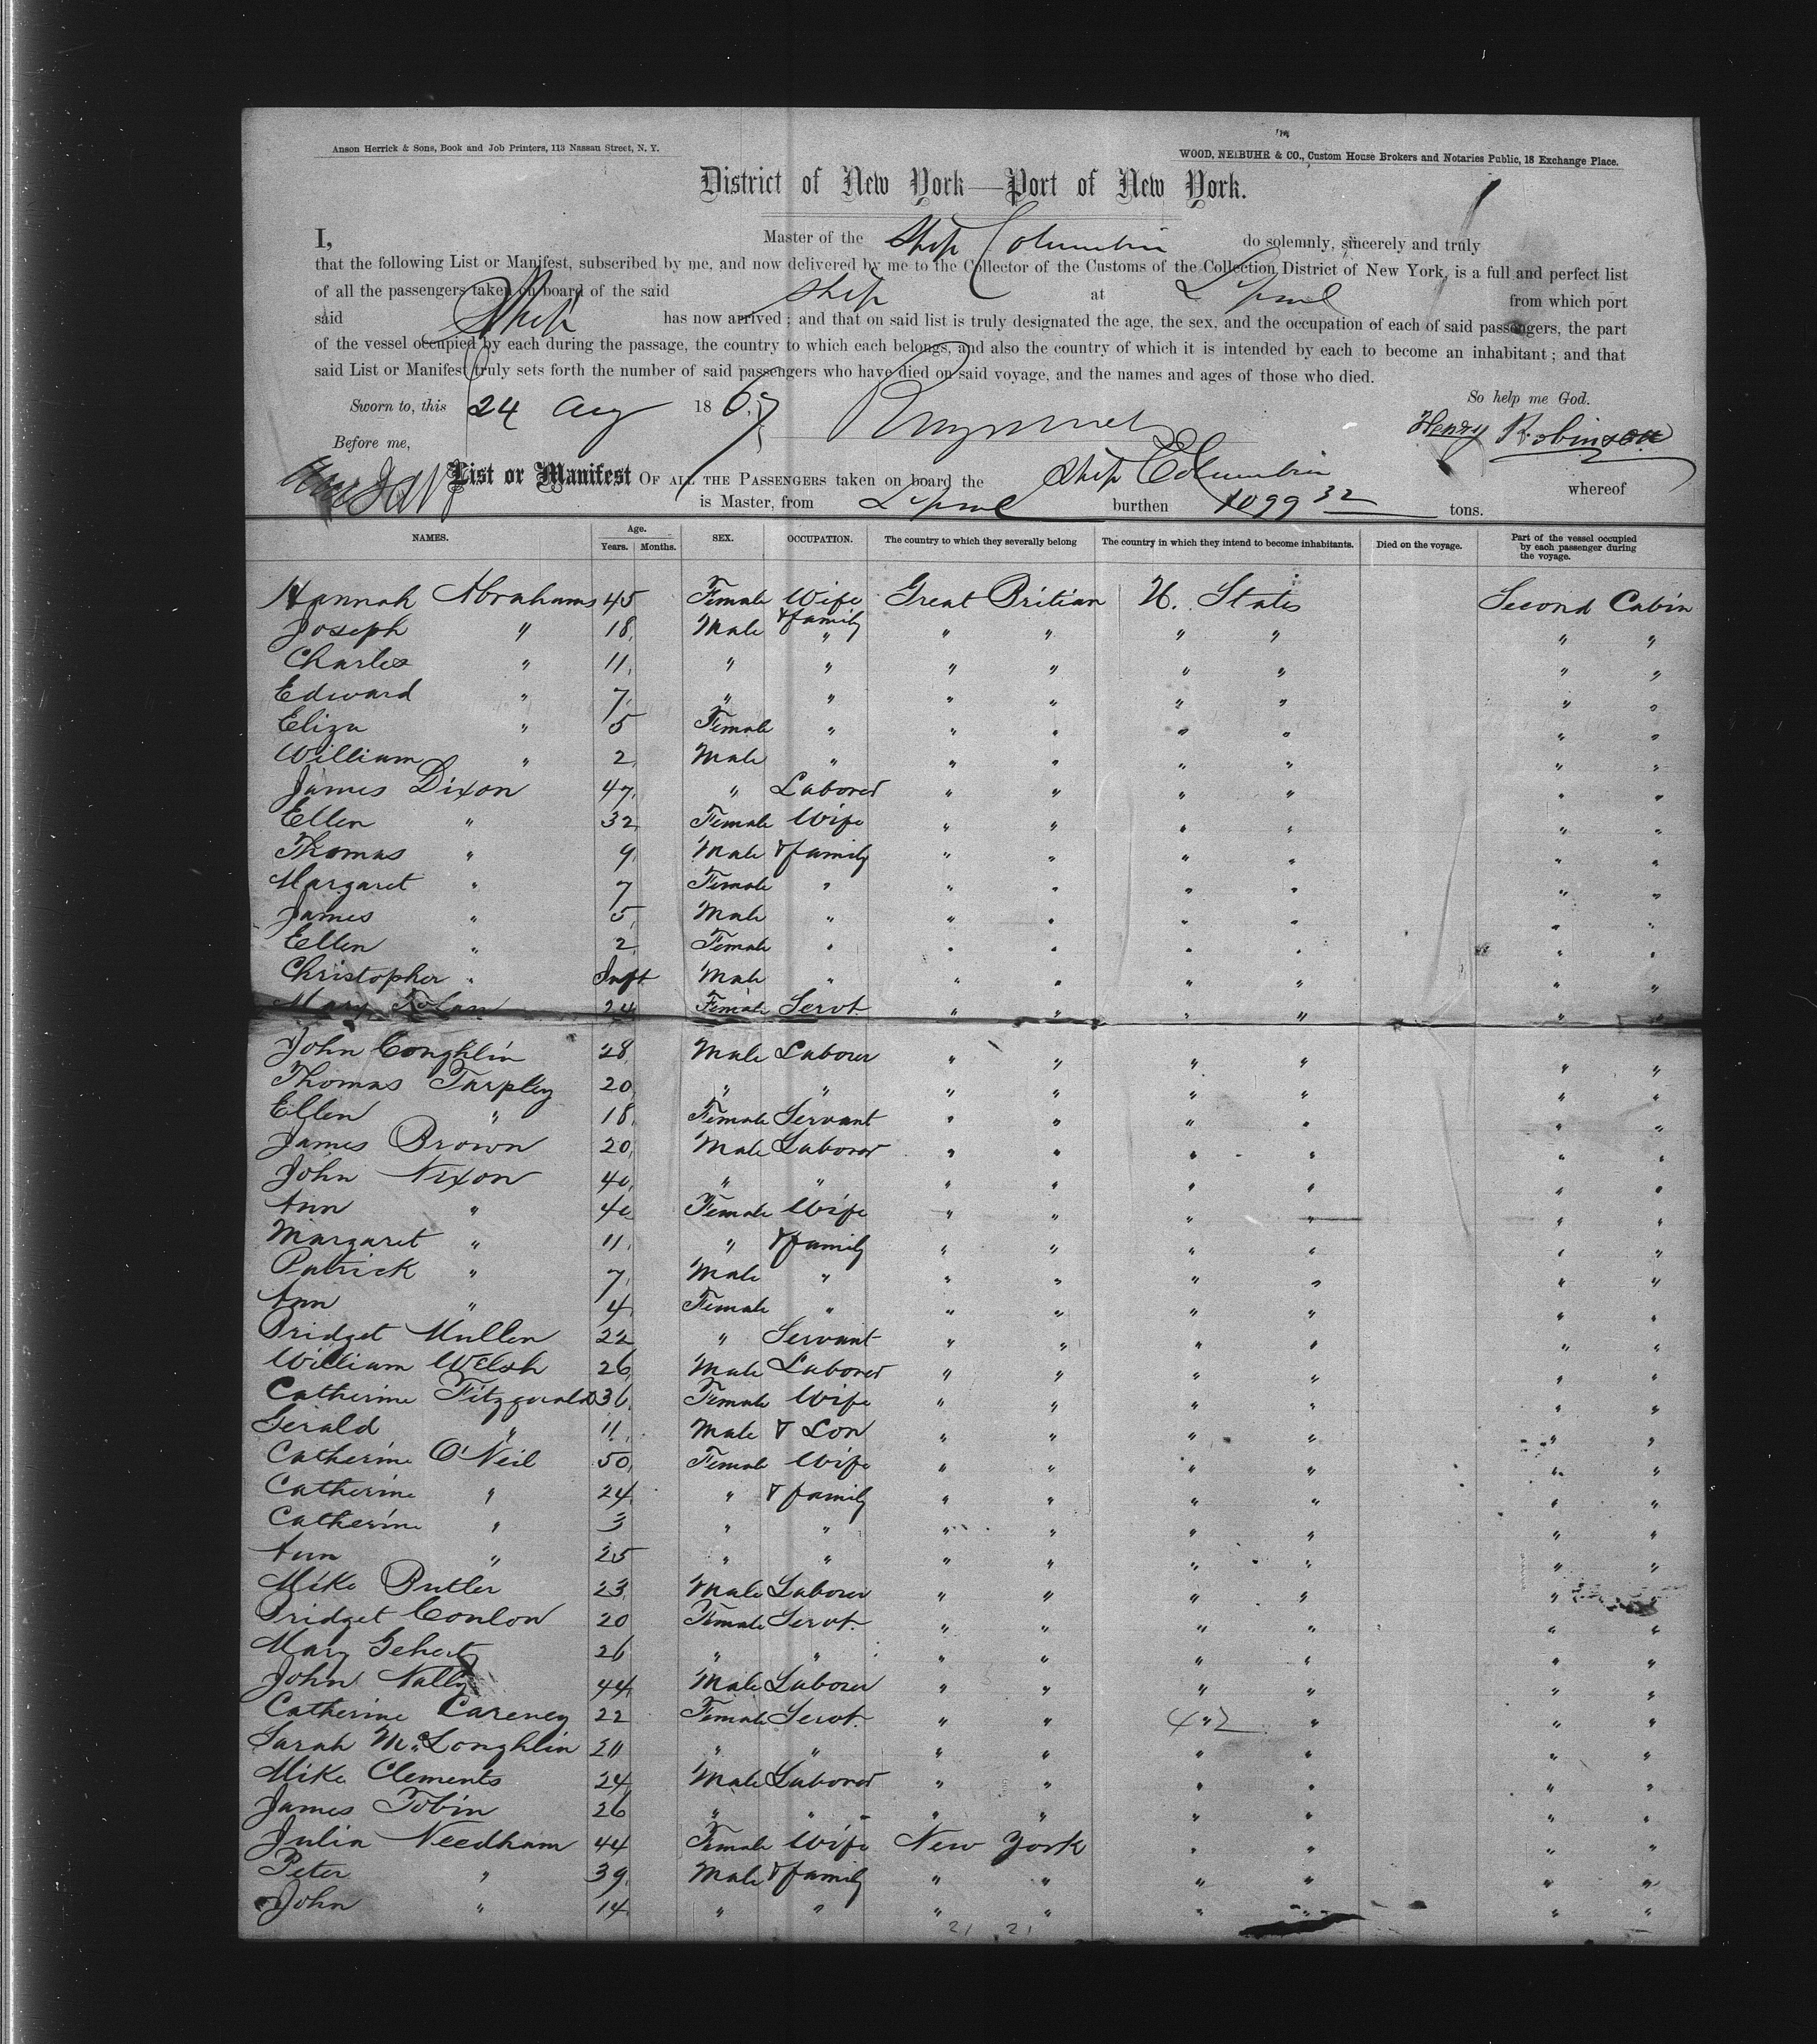 Anson Herrick & Sons, Book and Job Printers, 113 Nassau Street, N. Y.
WOOD, NEIBUHR & CO., Custom House Brokers and Notaries Public, 18 Exchange Place.
District of New York—Port of New York.
I, Master of the Ship Columbia do solemnly, sincerely and truly
that the following List or Manifest, subscribed by me, and now delivered by me to the Collector of the Customs of the Collection District of New York, is a full and perfect list
of all the passengers taken on board of the said ship at L'pool from which port
said Ship has now arrived; and that on said list is truly designated the age, the sex, and the occupation of each of said passengers, the part
of the vessel occupied by each during the passage, the country to which each belongs, and also the country of which it is intended by each to become an inhabitant; and that
said List or Manifest truly sets forth the number of said passengers who have died on said voyage, and the names and ages of those who died.
Sworn to, this 24 Aug 1867 So help me God.
Before me, Henry Robinson
List or Manifest OF ALL THE PASSENGERS taken on board the Ship Columbia whereof
is Master, from L'pool burthen 1099 32 tons.
NAMES. Age. Years. Months. SEX. OCCUPATION. The country to which they severally belong The country in which they intend to become inhabitants. Died on the voyage. Part of the vessel occupied by each passenger during the voyage.
Hannah Abrahams 45 Female Wife Great Britian U. States Second Cabin
Joseph " 18 Male & family " " " " " " "
Charles " 11 " " " " " " " "
Edward " 7 " " " " " " " "
Eliza " 5 Female " " " " " " "
William " 2 Male " " " " " " "
James Dixon 47 " Laborer " " " " " "
Ellen " 32 Female Wife " " " " " "
Thomas " 9 Male & family " " " " " "
Margaret " 7 Female " " " " " " "
James " 5 Male " " " " " " "
Ellen " 2 Female " " " " " " "
Christopher " Inft Male " " " " " " "
Mary 24 Female Servt " " " " " "
John Coughlin 28 Male Laborer " " " " " "
Thomas Tarpley 20 " " " " " " " "
Ellen " 18 Female Servant " " " " " "
James Brown 20 Male Laborer " " " " " "
John Nixon 40 " " " " " " " "
Ann " 40 Female Wife " " " " " "
Margaret " 11 " & family " " " " " "
Patrick " 7 Male " " " " " " "
Ann " 4 Female " " " " " " "
Bridget Mullen 22 " Servant " " " " " "
William Welsh 26 Male Laborer " " " " " "
Catherine Fitzgerald 36 Female Wife " " " " " "
Gerald " 11 Male & Son " " " " " "
Catherine O'Neil 50 Female Wife " " " " " "
Catherine " 24 " & family " " " " " "
Catherine " 3 " " " " " " " "
Ann " 25 " " " " " " " "
Mike Butler 23 Male Laborer " " " " " "
Bridget Conlon 20 Female Servt. " " " " " "
Mary 26 " " " " " " " "
John Nally 44 Male Laborer " " " " " "
Catherine Careney 22 Female Servt. " " 42 " " " "
Sarah McLoughlin 20 " " " " " " " "
Mike Clements 24 Male Laborer " " " " " "
James Tobin 26 " " " " " " " "
Julia Needham 44 Female Wife New York " " " "
Peter " 39 Male & family " " " " " "
John " 14 " " " " " " " "
21 21